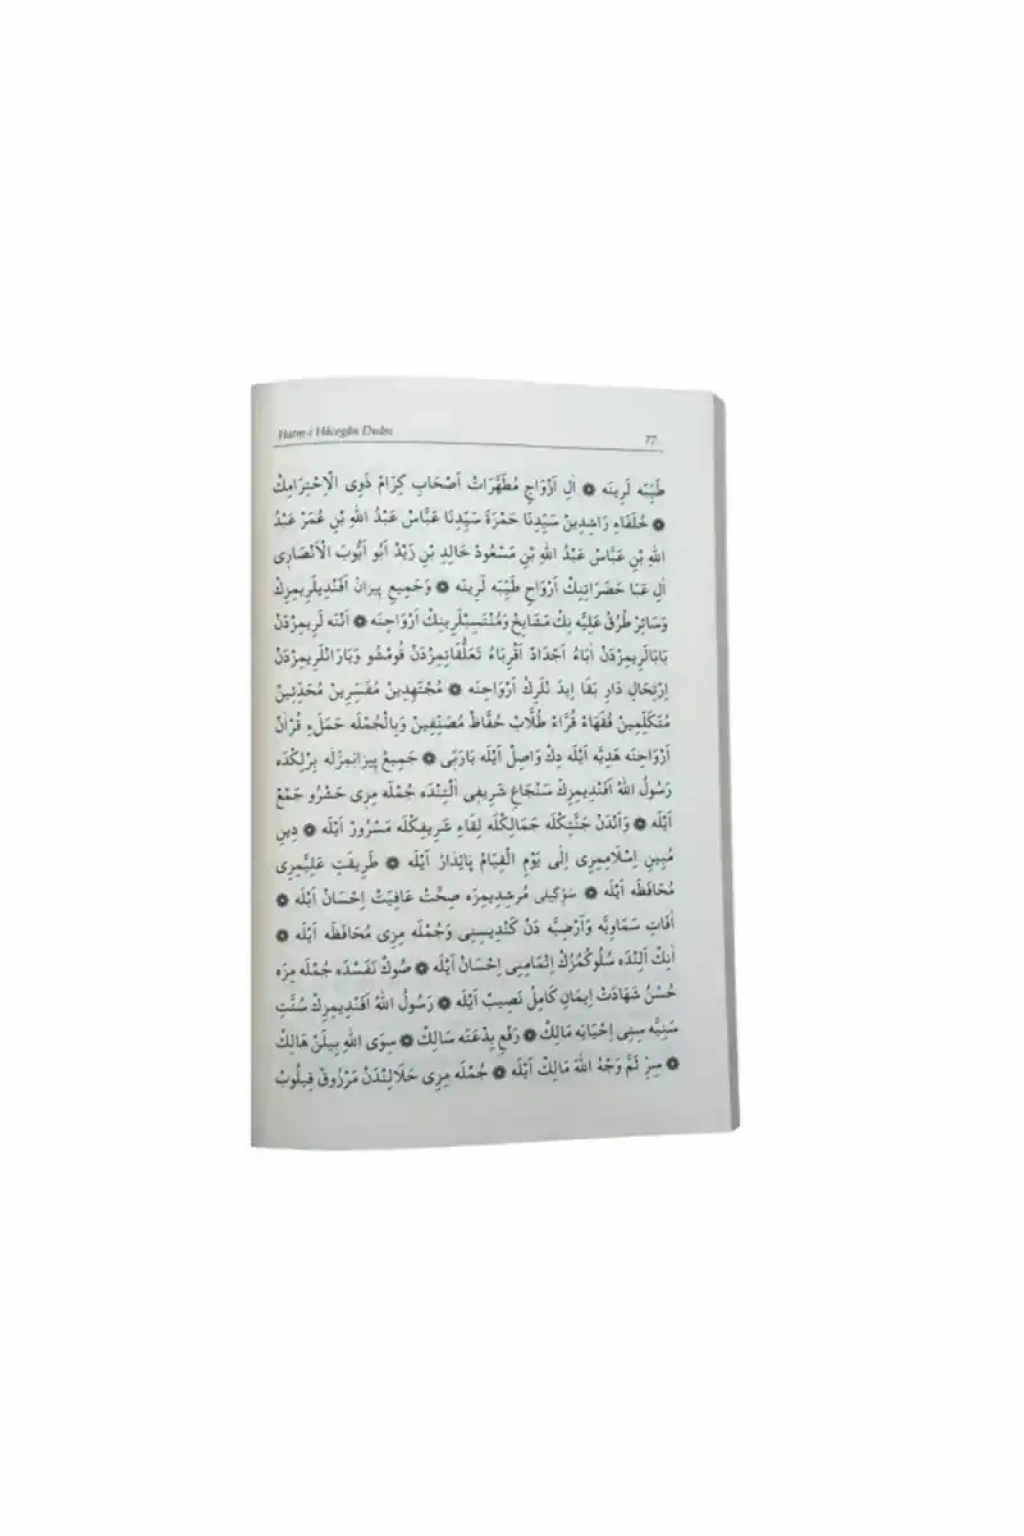 Hatm-i Hâcegân Duâsı 77
طَيِّبَه لَرِينَه ۞ اٰلِ اَزْوَاجِ مُطَهَّرَاتْ اَصْحَابِ كِرَامْ ذَوِى الْاِحْتِرَامِكْ
۞ خُلَفَاءِ رَاشِدِينْ سَيِّدِنَا حَمْزَهَ سَيِّدِنَا عَبَّاسْ عَبْدُ اللّٰهِ بْنِ عُمَرْ عَبْدُ
اللّٰهِ بْنِ عَبَّاسْ عَبْدُ اللّٰهِ بْنِ مَسْعُودْ خَالِدِ بْنِ زَيْدْ اَبُو اَيُّوبَ الْاَنْصَارِى
اٰلِ عَبَا حَضَرَاتِنِكْ اَرْوَاحِ طَيِّبَه لَرِينَه ۞ وَجَمِيعِ پِيرَانْ اَفَنْدِيلَرِيمِزِكْ
وَسَائِرْ طُرُقِ عَلِيَّه نِكْ مَشَايِخْ وَمُنْتَسِبْلَرِينِكْ اَرْوَاحِنَه ۞ اَنْنَه لَرِيمِزْدَنْ
بَابَالَرِيمِزْدَنْ اٰبَاءْ اَجْدَادْ اَقْرِبَاءْ تَعَلُّقَاتِمِزْدَنْ قُومْشُو وَيَارَانْلَرِيمِزْدَنْ
اِرْتِحَالِ دَارِ بَقَا اِيدَ نْلَرِكْ اَرْوَاحِنَه ۞ مُجْتَهِدِينْ مُفَسِّرِينْ مُحَدِّثِينْ
مُتَكَلِّمِينْ فُقَهَاءْ قُرَّاءْ طُلَّابْ حُفَّاظْ مُصَنِّفِينْ وَبِالْجُمْلَه حَمَلَءِ قُرْاٰنْ
اَرْوَاحِنَه هَدِيَّه اَيْلَه دِكْ وَاصِلْ اَيْلَه يَارَبِّى ۞ جَمِيعْ پِيرَانِمِزْلَه بِرْلِكْدَه
رَسُولُ اللّٰهْ اَفَنْدِيمِزِكْ سَنْجَاغِ شَرِيفِى اٰلْتِنْدَه جُمْلَه مِزِى حَشْرُو جَمْعْ
اَيْلَه ۞ وَاٰنْدَنْ جَنَّتِكْلَه جَمَالِكْلَه لِقَاءِ شَرِيفِكْلَه مَسْرُورْ اَيْلَه ۞ دِينِ
مُبِينِ اِسْلَامِمِزِى اِلٰى يَوْمِ الْقِيَامْ پَايِدَارْ اَيْلَه ۞ طَرِيقَتِ عَلِيَّمِزِى
مُحَافَظَه اَيْلَه ۞ سَوْكِيلِى مُرشِدِيمِزَه صِحَّتْ عَافِيَتْ اِحْسَانْ اَيْلَه ۞
اٰفَاتِ سَمَاوِيَّه وَاَرْضِيَّه دَنْ كَنْدِيسِنِى وَجُمْلَه مِزِى مُحَافَظَه اَيْلَه ۞
اٰنِكْ اَلِنْدَه سُلُوكُمُزُكْ اِتْمَامِنِى اِحْسَانْ اَيْلَه ۞ صُوكْ نَفَسْدَه جُمْلَه مِزَه
حُسْنُ شَهَادَتْ اِيمَانِ كَامِلْ نَصِيبْ اَيْلَه ۞ رَسُولُ اللّٰهْ اَفَنْدِيمِزِكْ سُنَّتِ
سَنِيَّه سِنِى اِحْيَايَه مَالِكْ ۞ رَفْعِ بِدْعَتَه سَالِكْ ۞ سِوَى اللّٰهِ بِيلَنْ هَالِكْ
۞ سِرِّ ثَمَّ وَجْهُ اللّٰهَ مَالِكْ اَيْلَه ۞ جُمْلَه مِزِى حَلَالِنْدَنْ مَرْزُوقْ قِيلُوبْ